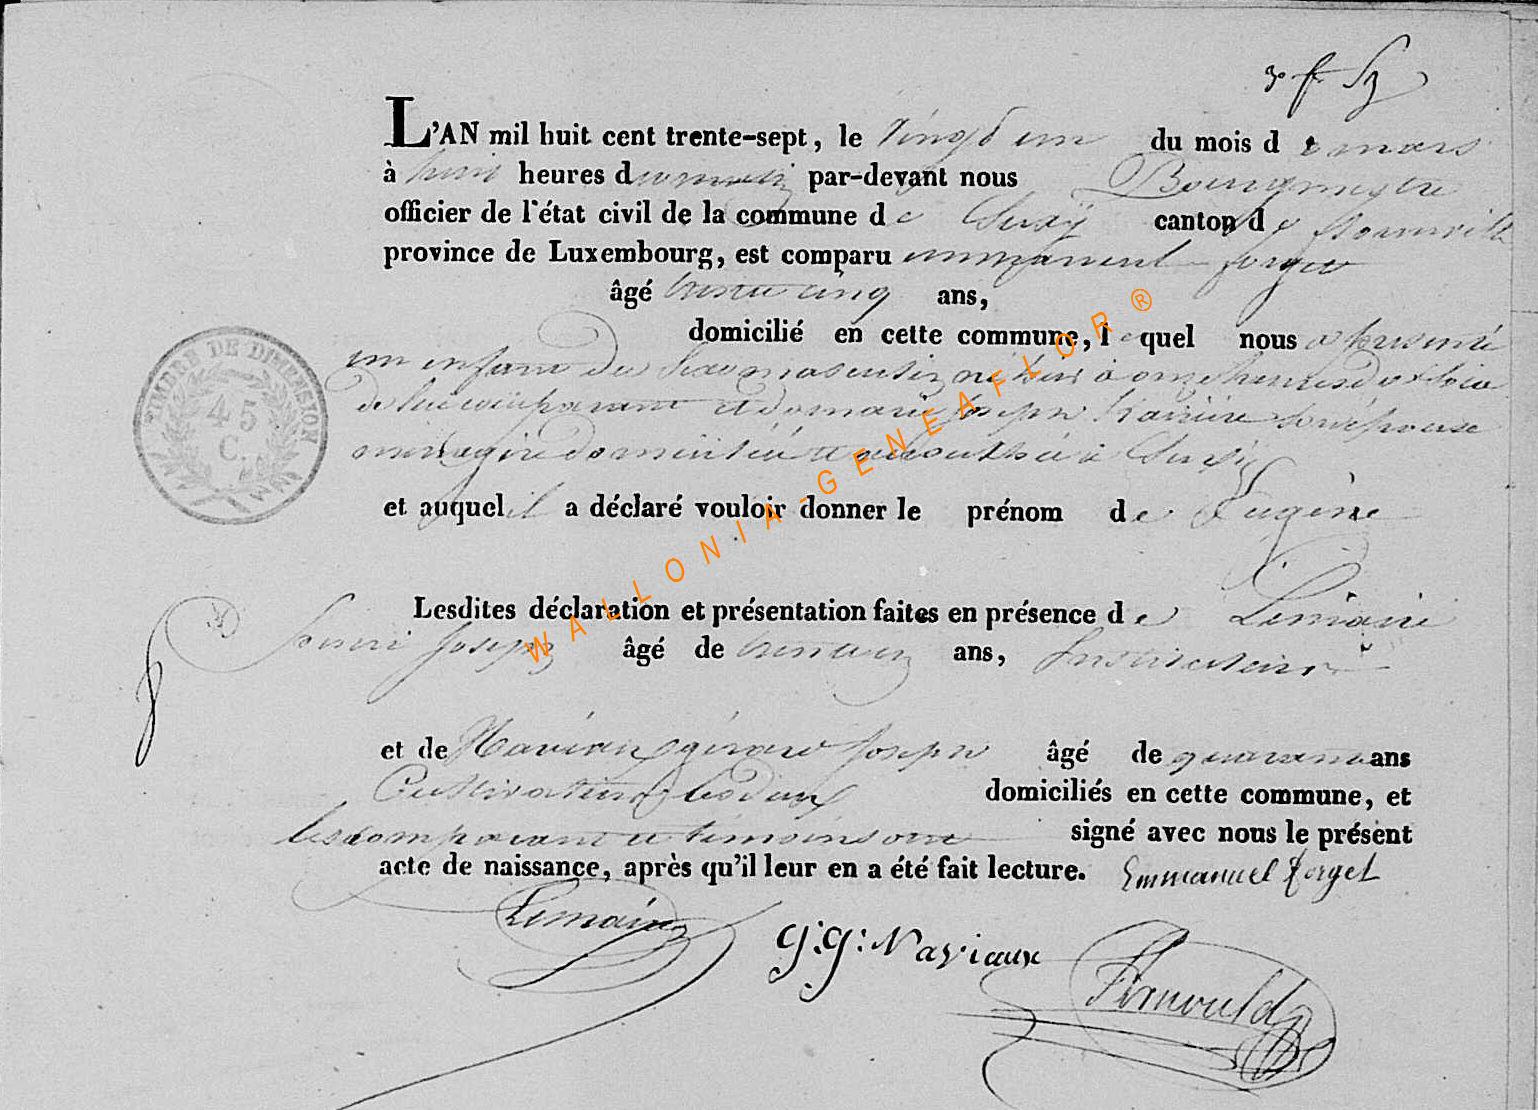 L'AN mil huit cent trente-sept, le vingt un du mois de mars
à huit heures du matin par-devant nous Bourgmestre
officier de l'état civil de la commune de Suxÿ canton de florenville
province de Luxembourg, est comparu emmanuel forget
âgé trente cinq ans,
domicilié en cette commune, lequel nous a présenté
un enfant du Sexe masculin né hier à onze heures du Soir
de lui comparant et de marie joseph Son épouse
ménagère domiciliée et accouchée à Suxÿ
et auquel il a déclaré vouloir donner le prénom de Eugène
Lesdites déclaration et présentation faites en présence de Lemaire
henri joseph âgé de ans, Instituteur
et de gérard joseph âgé de quarante ans
Cultivateur tous deux domiciliés en cette commune, et
les comparant et témoins ont signé avec nous le présent
acte de naissance, après qu'il leur en a été fait lecture. Emmanuel forget
Lemaire
g: g: Naviaux
TIMBRE DE DIMENSION
45
C.
WALLONIA-GENEAFLOR®